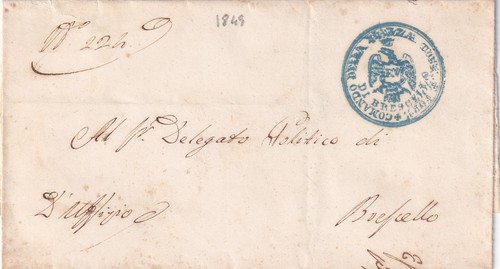 N° 224
1849
COMANDO DELLA PIAZZA
DI BRESCELLO
Al Sr. Delegato Politico di
D'Uffizio
Brescello